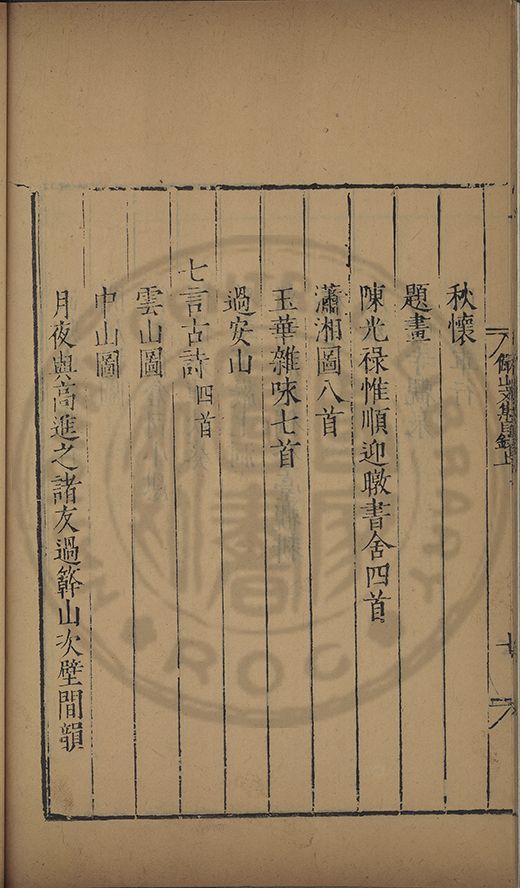 秋懷
題畫
陳光祿惟順迎暾書舍四首
瀟湘圖八首
玉華雜咏七首
過安山
七言古詩四首
雲山圖
中山圖
月夜與高進之諸友過簳山次壁間韻
山文集目錄上
ROC